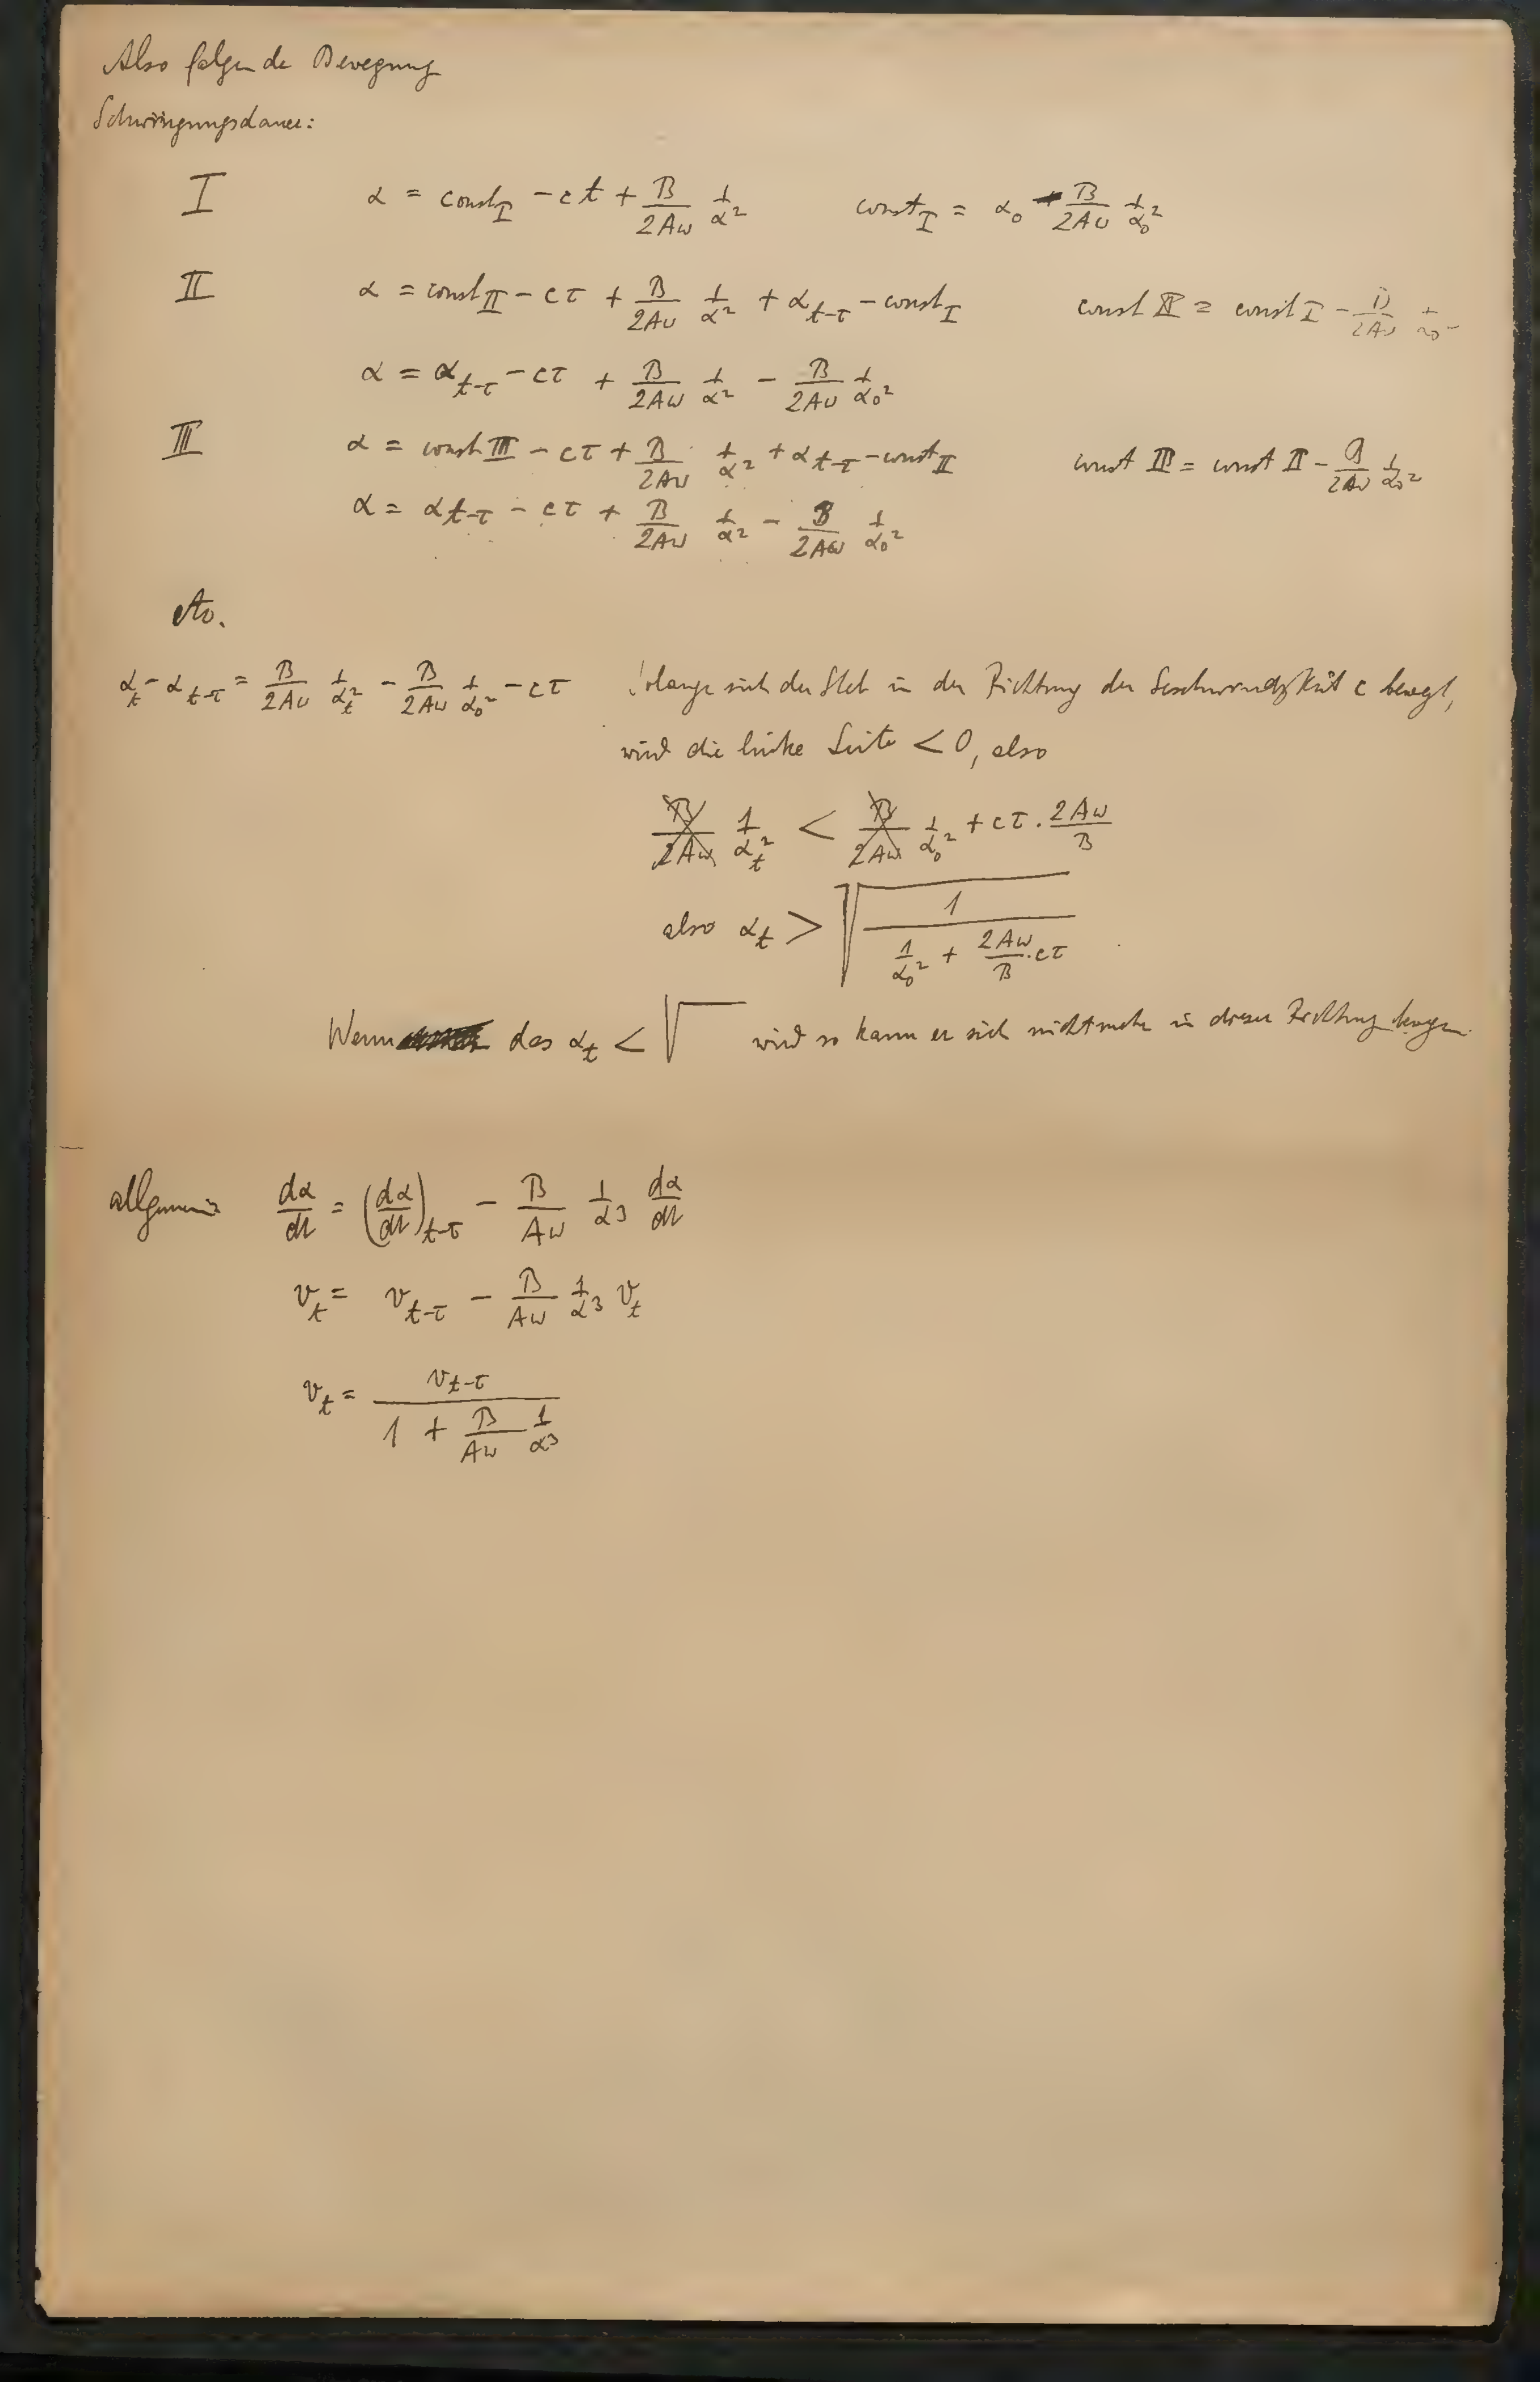 Also folgende Bewegung
Schwingungsdauer:
I α = const_I − ct + B/2Aω 1/α² const_I = α₀ − B/2Aω 1/α₀²
II α = const II − cτ + B/2Aω 1/α² + α_{t−τ} − const_I const II = const I − B/2Aω 1/α₀²
α = α_{t−τ} − cτ + B/2Aω 1/α² − B/2Aω 1/α₀²
III α = const III − cτ + B/2Aω 1/α² + α_{t−τ} − const_II const III = const II − B/2Aω 1/α₀²
α = α_{t−τ} − cτ + B/2Aω 1/α² − B/2Aω 1/α₀²
etc.
α_t − α_{t−τ} = B/2Aω 1/α_t² − B/2Aω 1/α₀² − cτ Solange sich der Steb in der Richtung der Geschwindigkeit c bewegt,
wird die linke Seite < 0, also
B/2Aω 1/α_t² < B/2Aω 1/α₀² + cτ · 2Aω/B
also α_t > √(1/(1/α₀² + 2Aω/B · cτ))
Wenn das α_t < √ wird so kann er sich nicht mehr in dieser Richtung bewegen.
allgemein dα/dt = (dα/dt)_{t−τ} − B/Aω 1/α³ dα/dt
v_t = v_{t−τ} − B/Aω 1/α³ v_t
v_t = v_{t−τ}/(1 + B/Aω 1/α³)